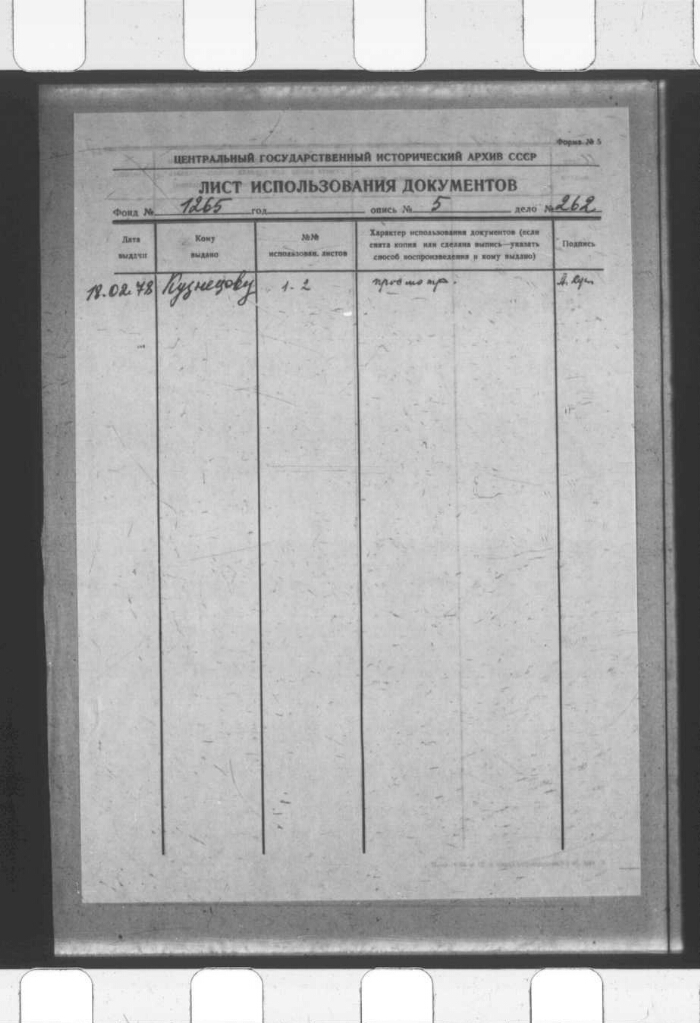 Форма № 5
ЦЕНТРАЛЬНЫЙ ГОСУДАРСТВЕННЫЙ ИСТОРИЧЕСКИЙ АРХИВ СССР
ЛИСТ ИСПОЛЬЗОВАНИЯ ДОКУМЕНТОВ
Фонд № 1265 год опись № 5 дело № 262
Дата выдачи
Кому выдано
№№ использован. листов
Характер использования документов (если
снята копия или сделана выпись—указать
способ воспроизведения и кому выдано)
Подпись
18.02.78 Кузнецову 1-2